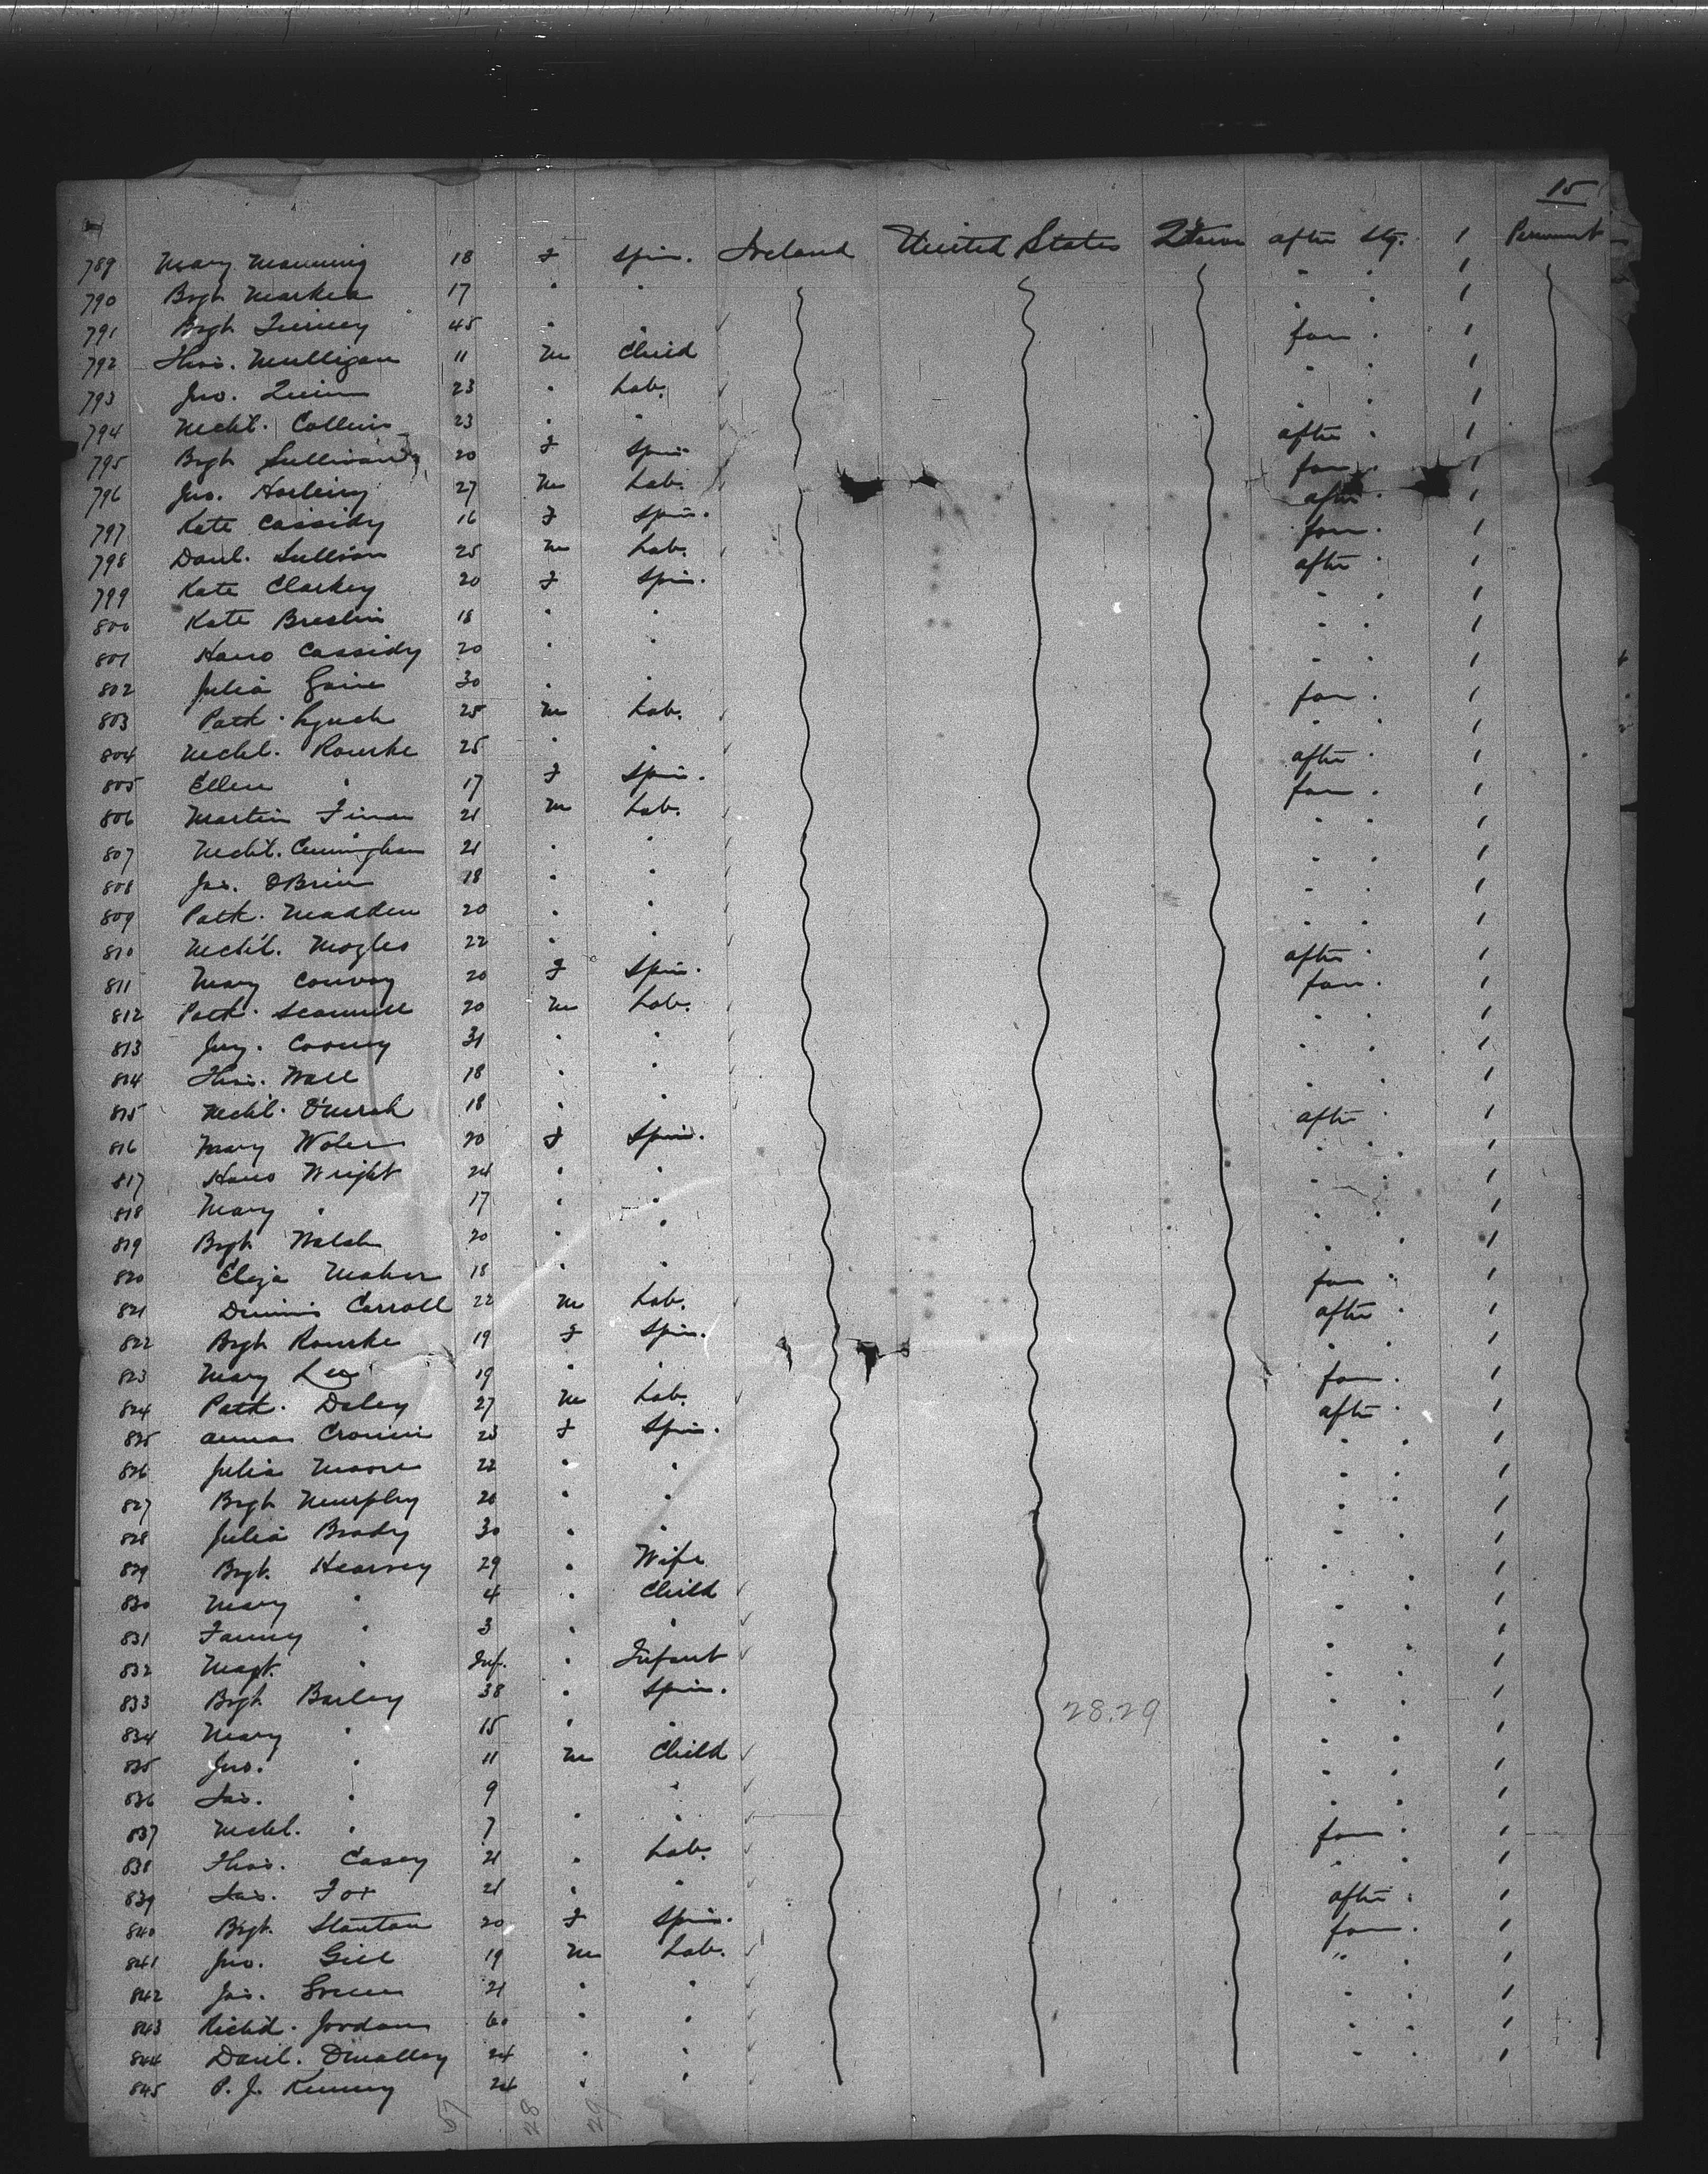 15
789 Mary Manning 18 F Spin. Ireland United States Q'town after Stg. 1 Permanent
790 Bgt Markea 17 " " " " 1
791 Bgt Tierney 45 " " " " 1
792 Thos. Mulligan 11 M Child for " 1
793 Jno. Quinn 23 " Lab. " " 1
794 Mchl. Collins 23 " " " " 1
795 Bgt Sullivan 20 F Spin after " 1
796 Jno. 27 M Lab. for " 1
797 Kate Cassidy 16 F Spin. after " 1
798 Danl. Sullivan 25 M Lab. for " 1
799 Kate Clarkey 20 F Spin. after " 1
800 Kate Breslin 18 " " " " 1
801 Hano Cassidy 20 " " " " 1
802 Julia 30 " " " " 1
803 Patk. Lynch 25 M Lab. for " 1
804 Mchl. Rourke 25 " " " " 1
805 Ellen " 17 F Spin. after " 1
806 Martin Finan 21 M Lab. for " 1
807 Mchl. Cunningham 21 " " " " 1
808 Jas. OBrien 18 " " " " 1
809 Patk. Madden 20 " " " " 1
810 Mchl. 22 " " " " 1
811 Mary Conway 20 F Spin. after " 1
812 Patk. Scannell 20 M Lab. for " 1
813 Jery. Cooney 31 " " " " 1
814 Thos. Wall 18 " " " " 1
815 Mchl. 18 " " " " 1
816 Mary 20 F Spin. after " 1
817 Hano Wright 24 " " " " 1
818 Mary " 17 " " " " 1
819 Bgt Walsh 20 " " " " 1
820 Eliza Maher 18 " " " " 1
821 Dennis Carroll 22 M Lab. for " 1
822 Bgt Rourke 19 F Spin. after " 1
823 Mary Lee 19 " " " " 1
824 Patk. Daley 27 M Lab. for " 1
825 Anna Cronin 23 F Spin. after " 1
826 Julia Moore 22 " " " " 1
827 Bgt Murphy 20 " " " " 1
828 Julia Brady 30 " " " " 1
829 Bgt. Hearvey 29 " Wife " " 1
830 Mary " 4 " Child " " 1
831 Fanny " 3 " " " " 1
832 Magt. " Inf. " Infant " " 1
833 Bgt Barley 38 " Spin. " " 1
28.29
834 Mary " 15 " " " " 1
835 Jno. " 11 M Child " " 1
836 Jas. " 9 " " " " 1
837 Mchl. " 7 " " " " 1
838 Thos. Casey 21 " Lab. for " 1
839 Jas. Fox 21 " " " " 1
840 Bgt. Stanton 20 F Spin. after " 1
841 Jno. Gill 19 M Lab. for " 1
842 Jas. Green 21 " " " " 1
843 Richd. Jordan 60 " " " " 1
844 Danl. OMalley 24 " " " " 1
845 P. J. Kenney 24 " " " " 1
57 28 29